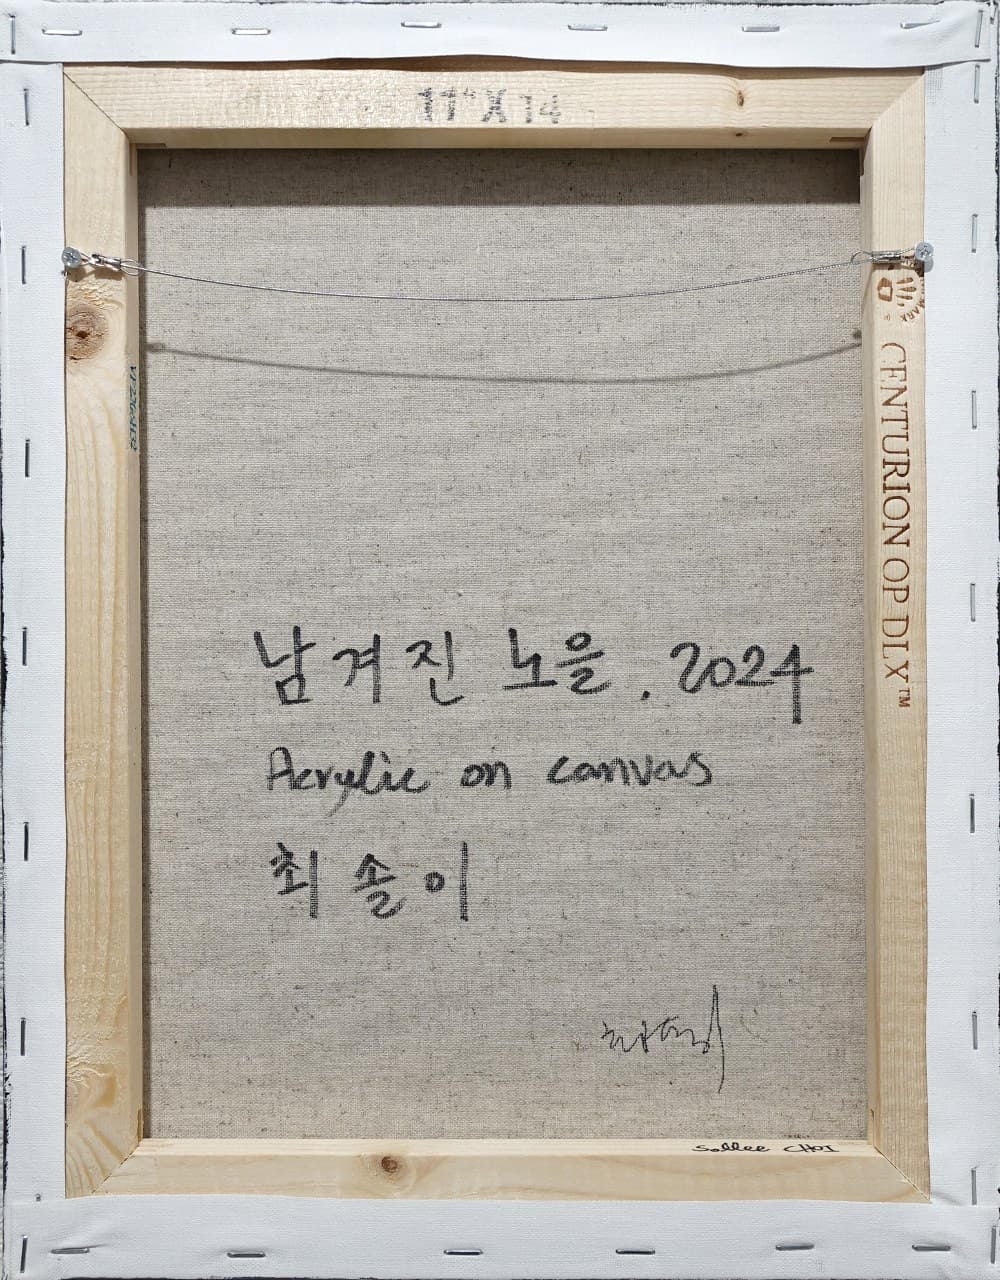 11" X 14
CENTURION OP DLX™
남겨진 노을. 2024
Acrylic on canvas
최솔이
Sollee CHOI